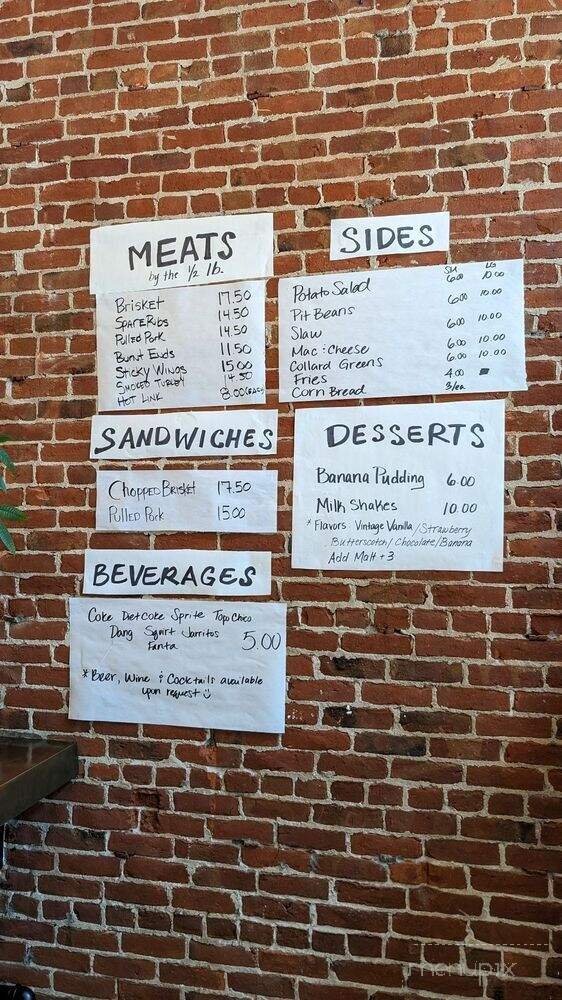 MEATS
by the 1/2 lb.
Brisket 17.50
Spare Ribs 14.50
Pulled Pork 14.50
Burnt Ends 11.50
Sticky Wings 15.00
Smoked Turkey 14.50
Hot Link 8.00 (each)
SANDWICHES
Chopped Brisket 17.50
Pulled Pork 15.00
BEVERAGES
Coke Diet coke Sprite Topo Chico
Dang Squirt Jarritos
Fanta 5.00
* Beer, Wine & Cocktails available
upon request
SIDES
SM LG
Potato Salad 6.00 10.00
Pit Beans 6.00 10.00
Slaw 6.00 10.00
Mac & Cheese 6.00 10.00
Collard Greens 6.00 10.00
Fries 4.00
Corn Bread 3/ea
DESSERTS
Banana Pudding 6.00
Milk Shakes 10.00
* Flavors Vintage Vanilla / Strawberry
Butterscotch / Chocolate / Banana
Add Malt + 3
menupix